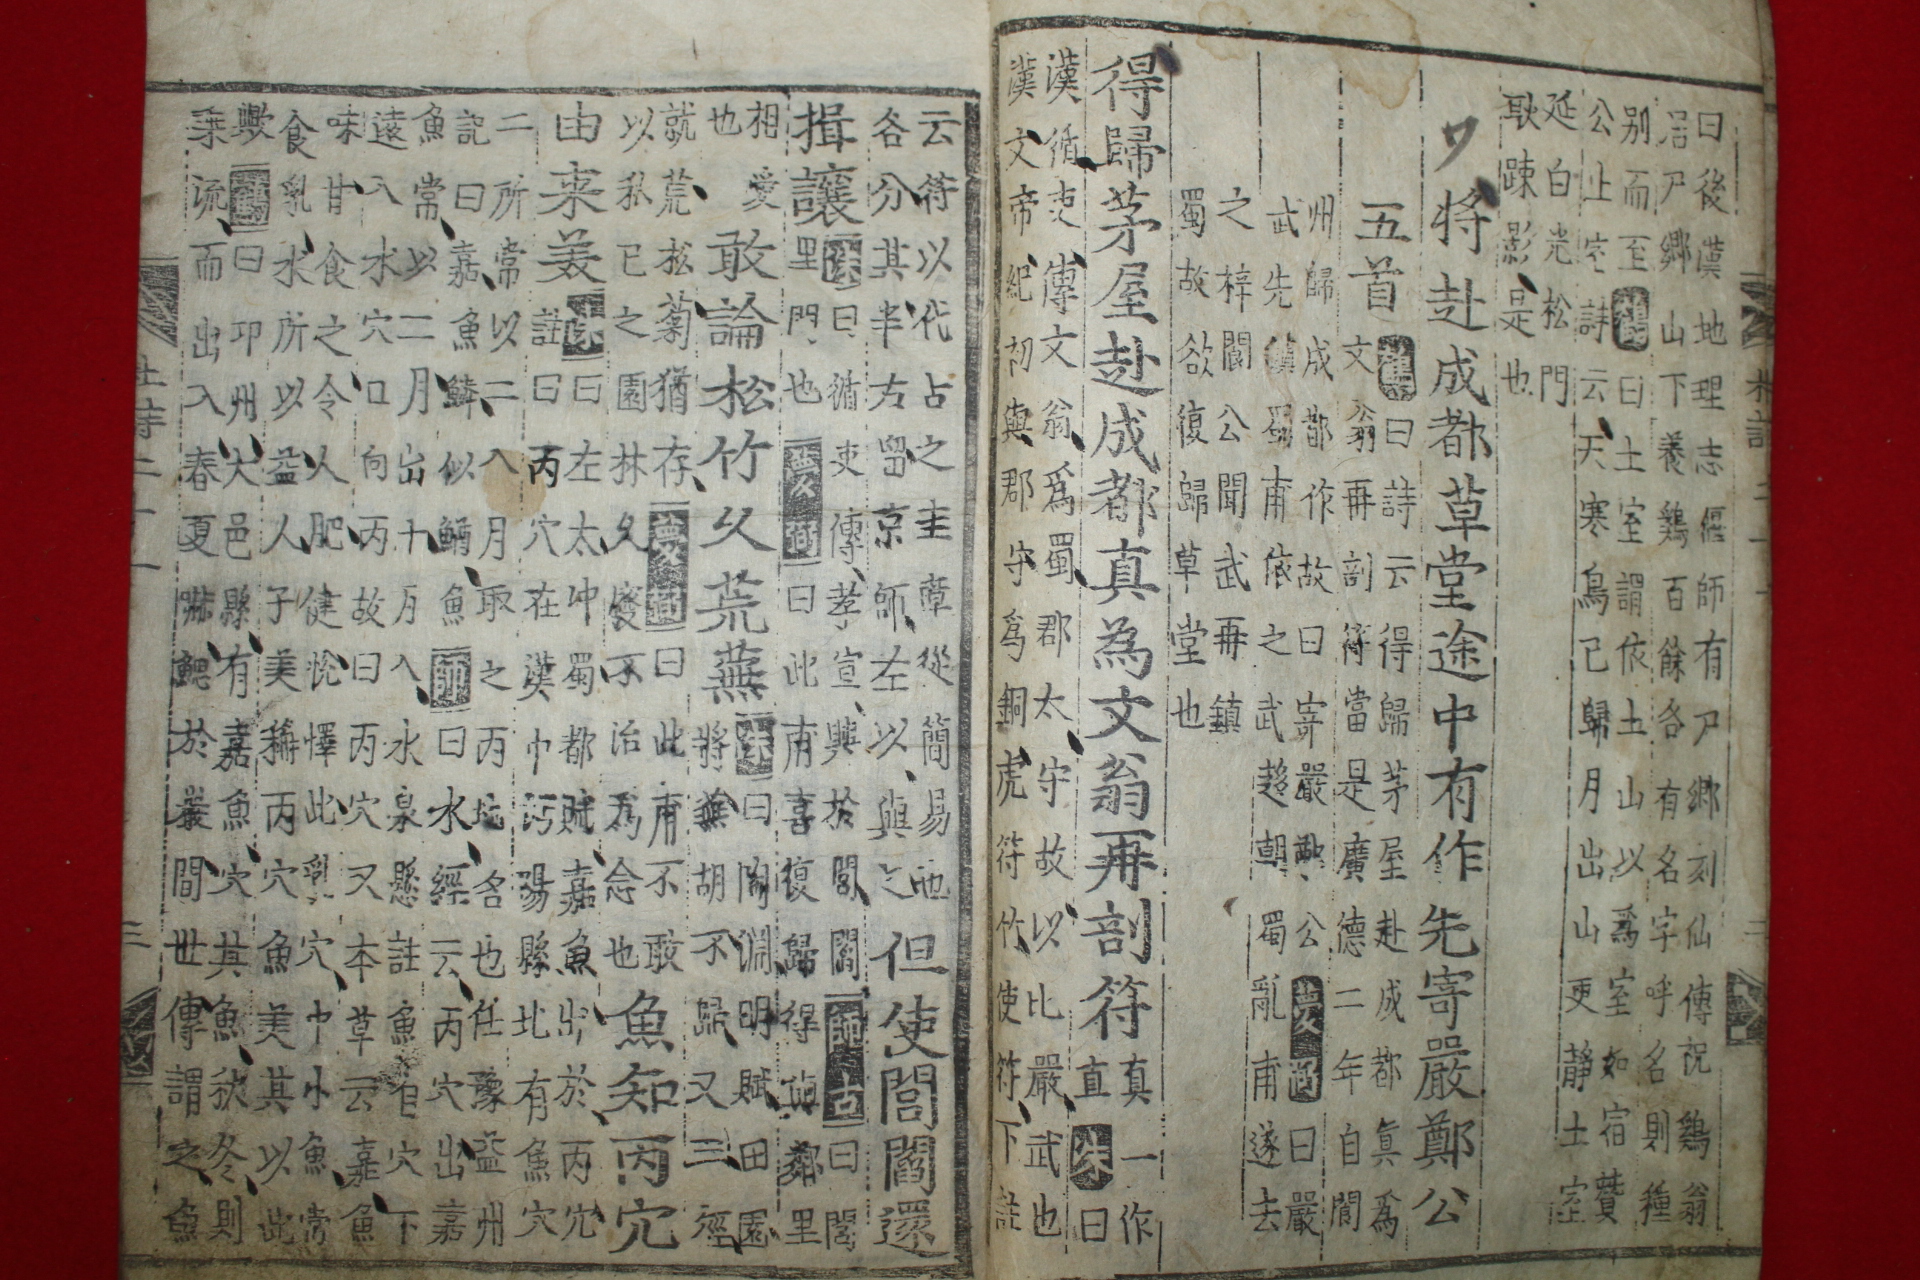 曰後漢地理志偃師有尸郷刻仙傳祝鷄翁
居尸郷山下養鷄百餘各有名字呼名則種
别而至鶴曰土室謂依土山以爲室如宿贊
公土室詩云天寒鳥已歸月出山更靜土室
延白光松門
耿踈影是也
將赴成都草堂途中有作先寄嚴鄭公
五首
舊曰詩云得歸茅屋赴成都真爲
文翁再剖符當是廣德二年自閬
州歸成都作故曰寄嚴鄭公夢弼曰嚴
武先鎮蜀甫依之武趍朝蜀亂甫遂去
之梓閬公聞武再鎮
蜀故欲復歸草堂也
得歸茅屋赴成都真為文翁再剖符
真一作
直洙曰
漢循吏傳文翁爲蜀郡太守故以比嚴武也
漢文帝紀初與郡守爲銅虎符竹使符下註
云符以代占之圭璋從簡易也
各分其半右留京師左以與之
但使閭閻還
揖讓
洙曰循吏傳孝宣興於閭閻師古曰閭
里門也夢弼曰此甫喜復歸得與鄰里
相愛
也
敢論松竹久荒蕪
師曰陶淵明賦田園
將蕪胡不歸又三徑
就荒松菊猶存夢弼曰此甫不敢
以私已之園林久廢不治爲念也
魚知丙穴
由来美
洙曰左太冲蜀都賦嘉魚出於丙穴
註曰丙穴在漢中沔陽縣北有魚穴
二所常以二八月取之丙地名也任豫益州
記曰嘉魚鱗似鱒魚師曰水經云丙穴出嘉
魚常以二月出十月入水泉懸註魚自穴下
遠入水穴口向丙故曰丙穴又本草云嘉魚
味甘食之令人肥健悅懌此乳穴中小魚常
食乳水所以益人子美稱丙穴魚美其以此
歟鶴曰邛州大邑縣有嘉魚穴其魚秋冬則
乘流而出入春夏嘛鯤於巖間世傳謂之魚